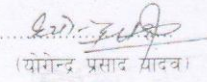 (योगेन्द्र प्रसाद यादव)